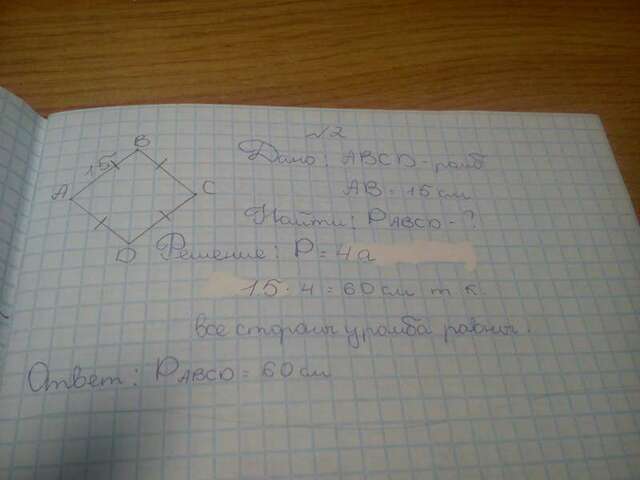 №2
B
15
A
C
D
Дано: ABCD - ромб
AB = 15 см
Найти: P ABCD - ?
Решение: P = 4a
15 · 4 = 60 см т.к.
все стороны у ромба равны.
Ответ: P ABCD = 60 см